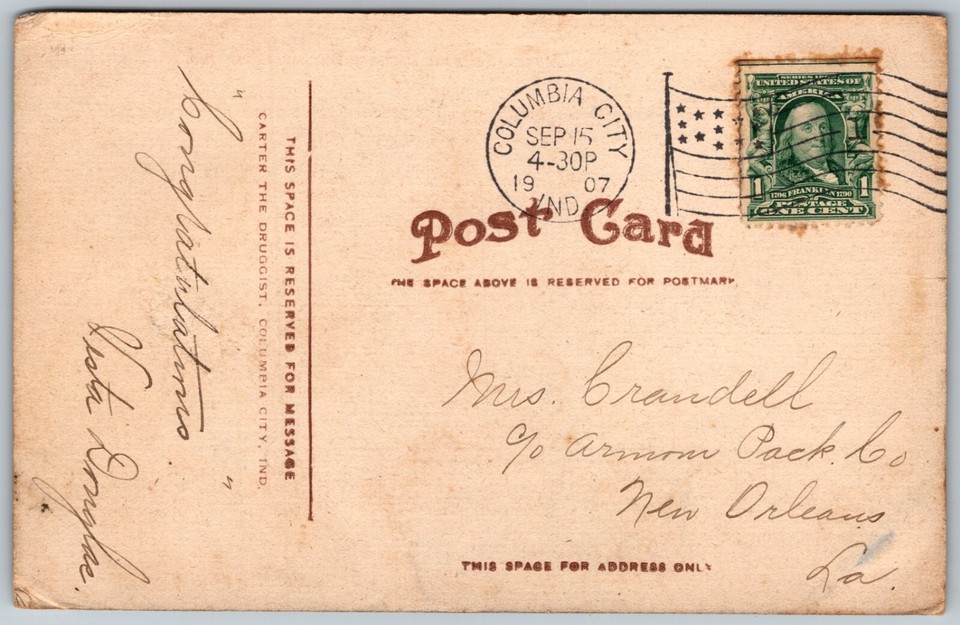 "Congratulations."
Vesta Douglas.
THIS SPACE IS RESERVED FOR MESSAGE
CARTER THE DRUGGIST, COLUMBIA CITY, IND.
COLUMBIA CITY
SEP 15
4-30P
19 07
IND
SERIES 1902
UNITED STATES OF
AMERICA
1 1706 FRANKLIN 1790 1
POSTAGE
ONE CENT
Post Card
THE SPACE ABOVE IS RESERVED FOR POSTMARK.
Mrs. Crandell
c/o Armour Pack. Co
New Orleans
La.
THIS SPACE FOR ADDRESS ONLY